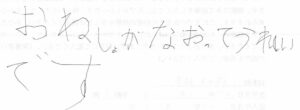 おねしょがなおってうれしい
です